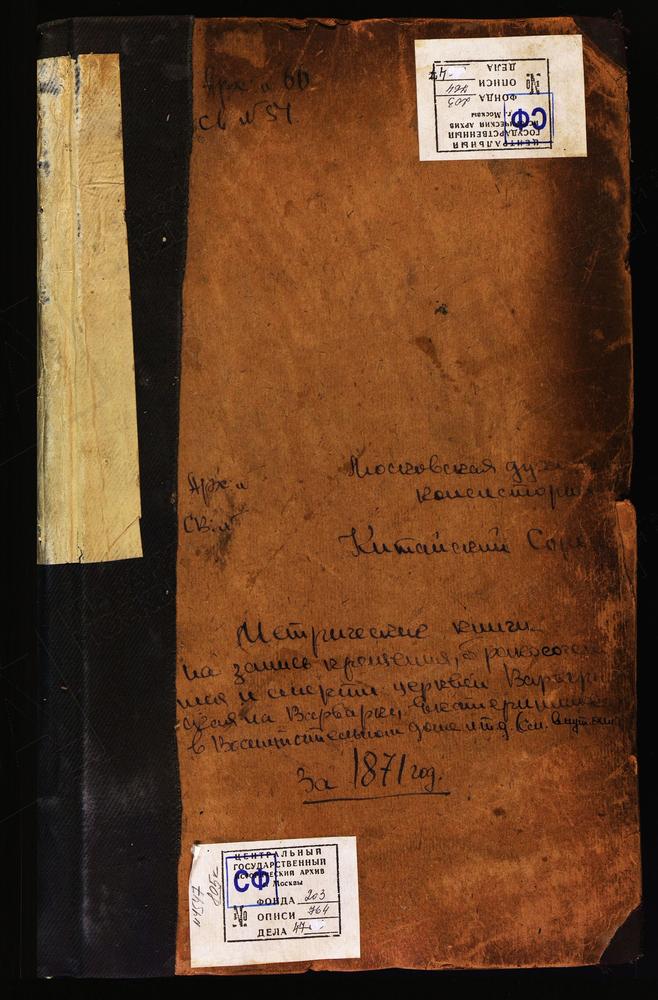 Арх. № 60
Св №54
ЦЕНТРАЛЬНЫЙ
ГОСУДАРСТВЕННЫЙ
ИСТОРИЧЕСКИЙ АРХИВ
г. Москвы
СФ
ФОНДА 203
№ ОПИСИ 764
ДЕЛА 47
Московская дух
консистория
Арх №
Св. №
Китайский Соро
Метрические книги
на запись крещения, бракосочета
ния и смерти церквей Варвари
на Варварке, Екатерининская
в Воспитательном доме и т.д. См. внутри
За 1871 год.
ЦЕНТРАЛЬНЫЙ
ГОСУДАРСТВЕННЫЙ
ИСТОРИЧЕСКИЙ АРХИВ
г. Москвы
СФ
ФОНДА 203
№ ОПИСИ 764
ДЕЛА 47